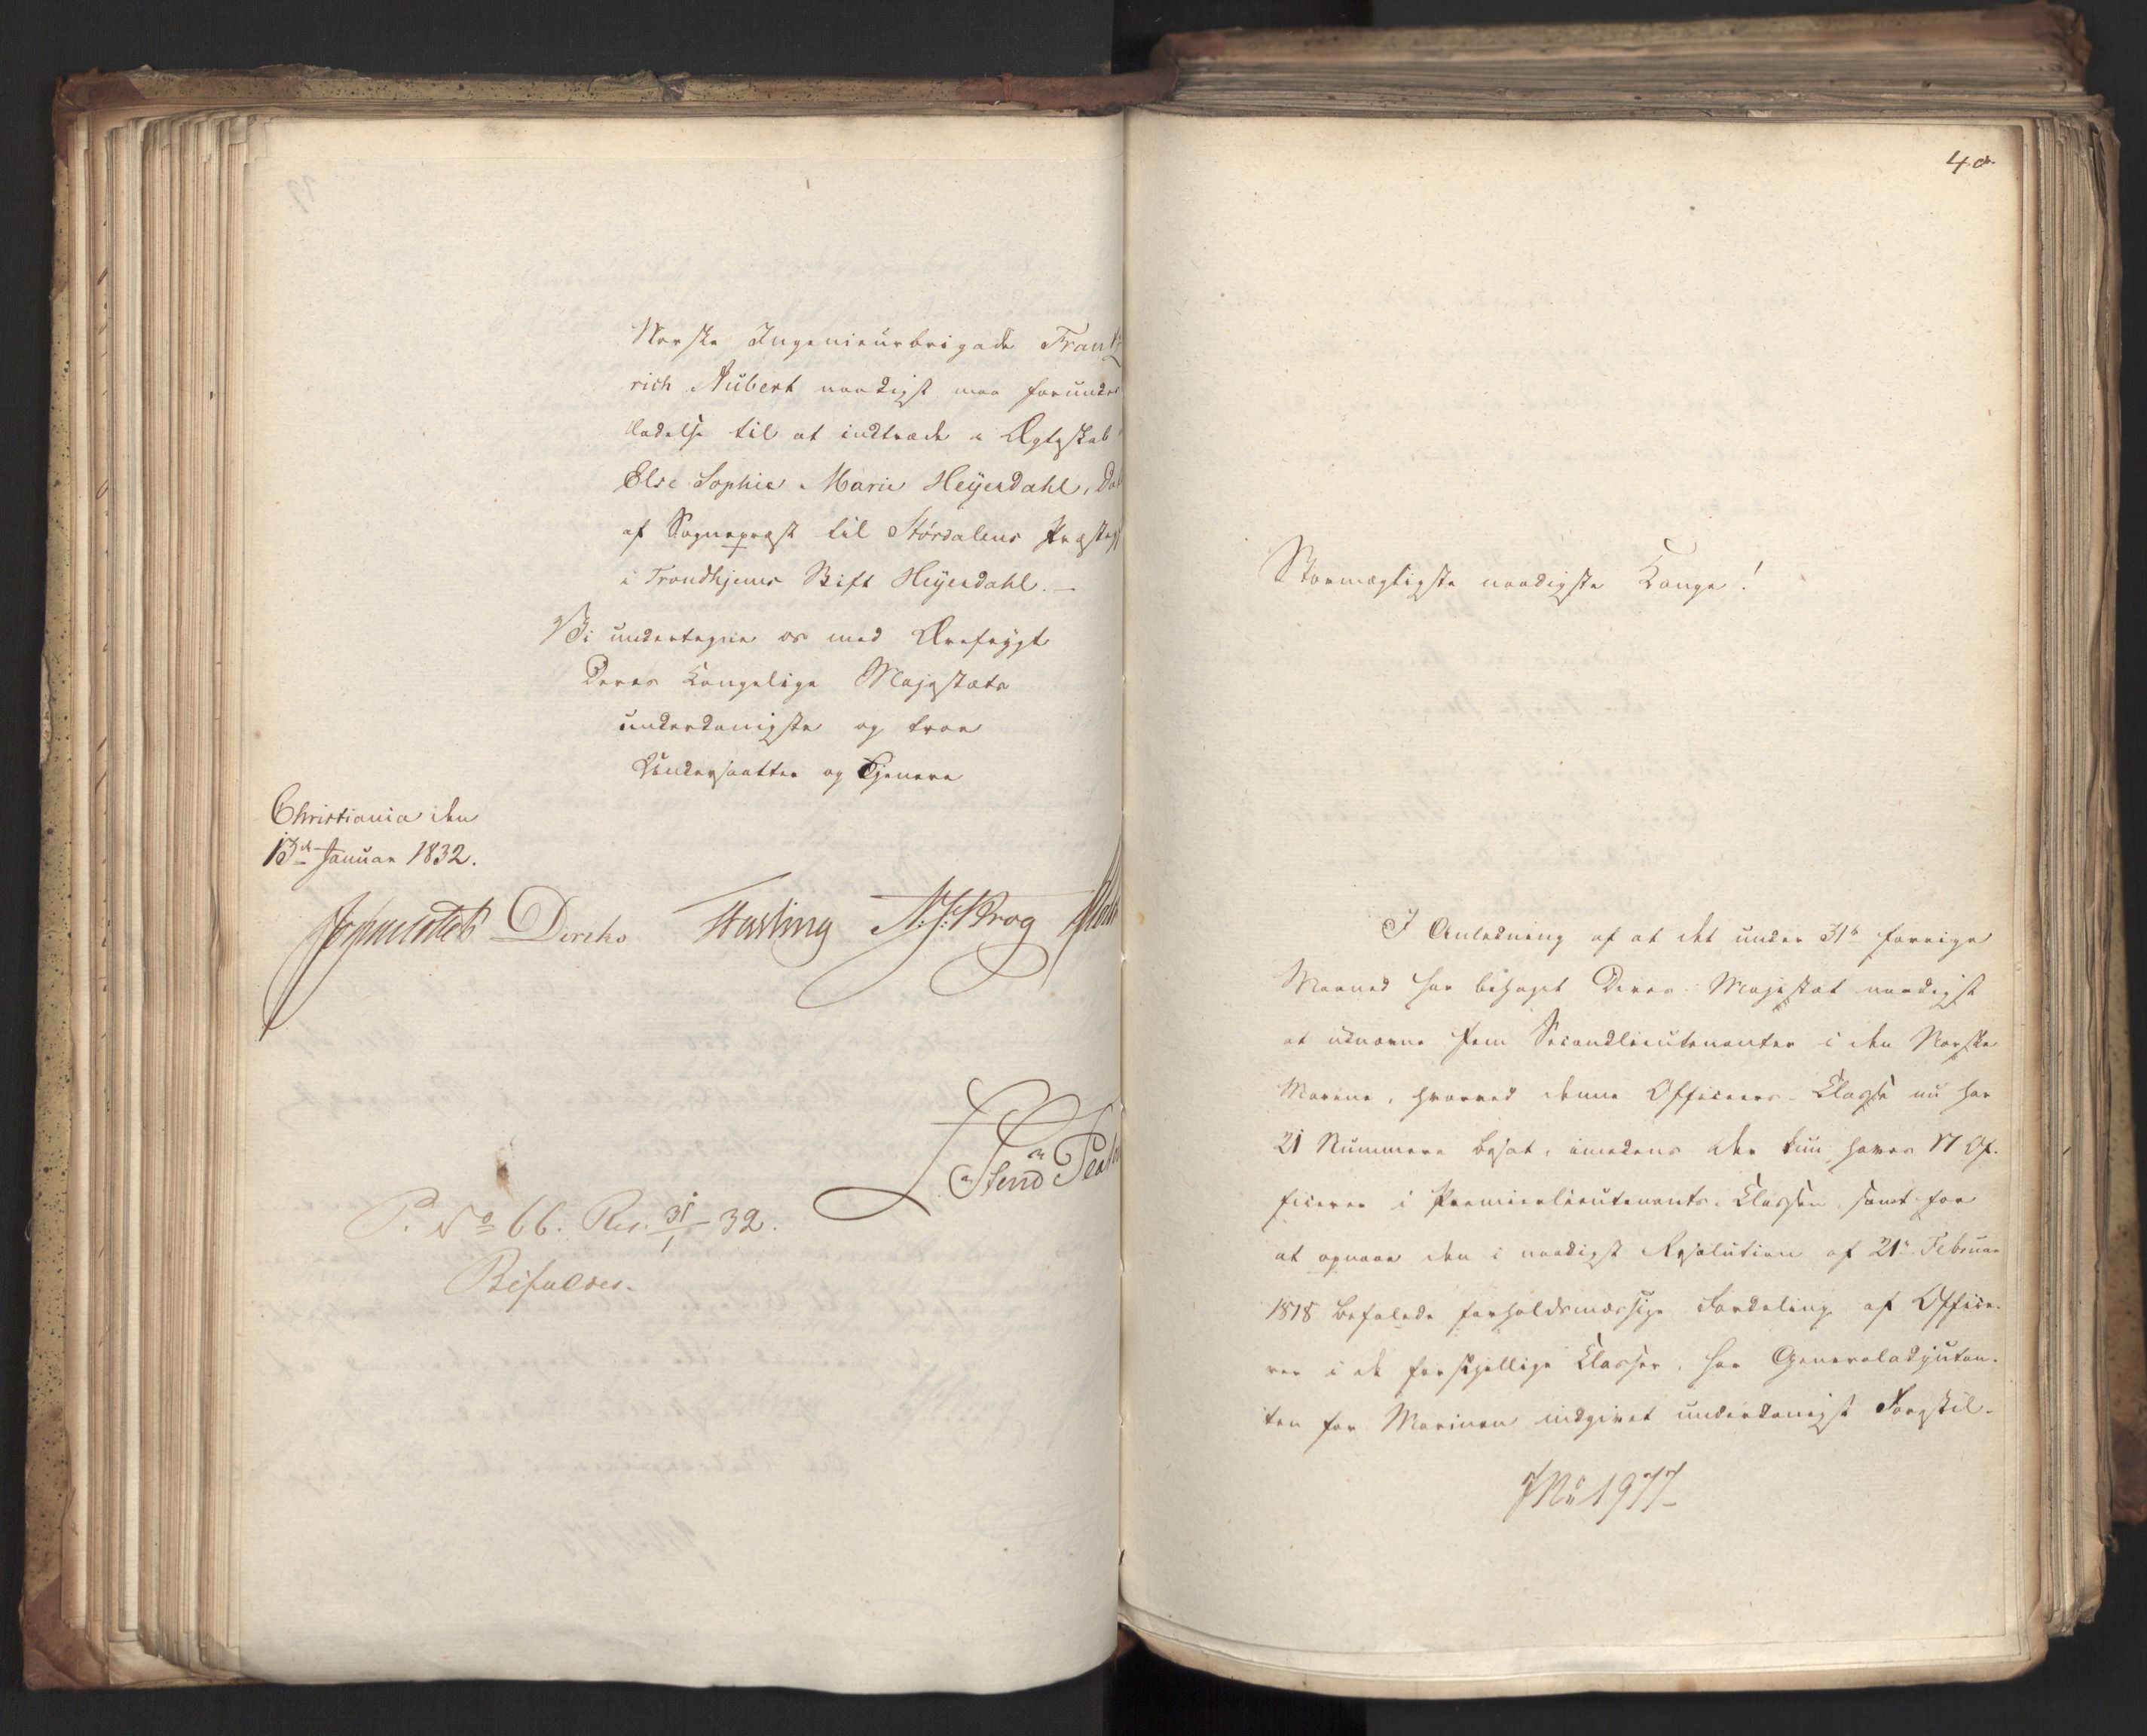 Norske Ingenieurbrigade Frant
rich Aubert naadigst maa forundes
ladelse til at indtræde i Ægteskab
Else Sophie Marie Heyerdahl, Dat
af Sognepræst til Størdalens Præste
i Trondhjems Stift Heyerdahl. —
Vi undertegne os med Ærefrygt
Deres Kongelige Majestæts
underdanigste og troe
Undersaatter og Tjenere
Christiania den
13de Januar 1832.
Diriks Hasling N. J. Krog
P. No 66. Res. 31/1 - 32.
Bifaldes.
40.
Stormægtigste naadigste Konge!
I Anledning af at det under 31te forrige
Maaned har behaget Deres Majestæt naadigst
at udnævne fem Secondlieutenanter i den Norske
Marine, hvorved denne Officeers-Classe nu har
21 Nummere besat, imedens der kun haves 17 Of-
ficerer i Premierlieutenants-Classen, samt for
at opnaae den i naadigst Resolution af 21de Februar
1818 befalede forholdsmæssige Fordeling af Office-
rer i de forskjellige Classer, har Generaladjutan-
ten for Marinen indgivet underdanigst Forestil-
JNo 1977